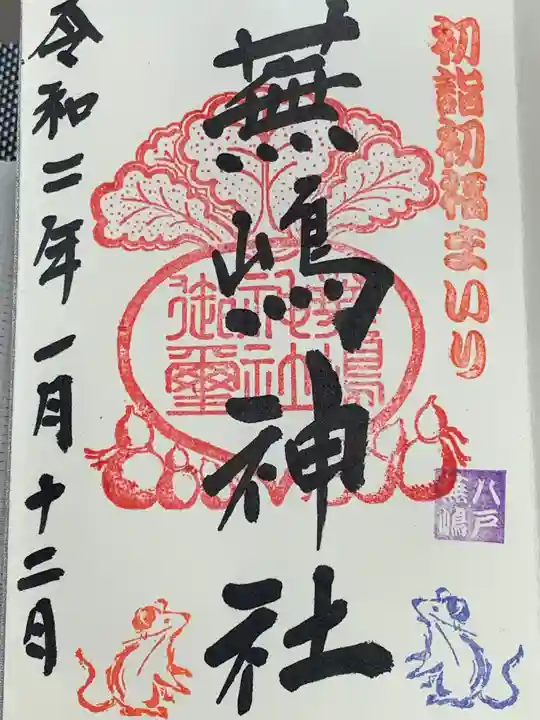 初詣初福まいり
八戸
蕪嶋
蕪嶋神社
蕪嶋
神社
御璽
令和二年一月十二日